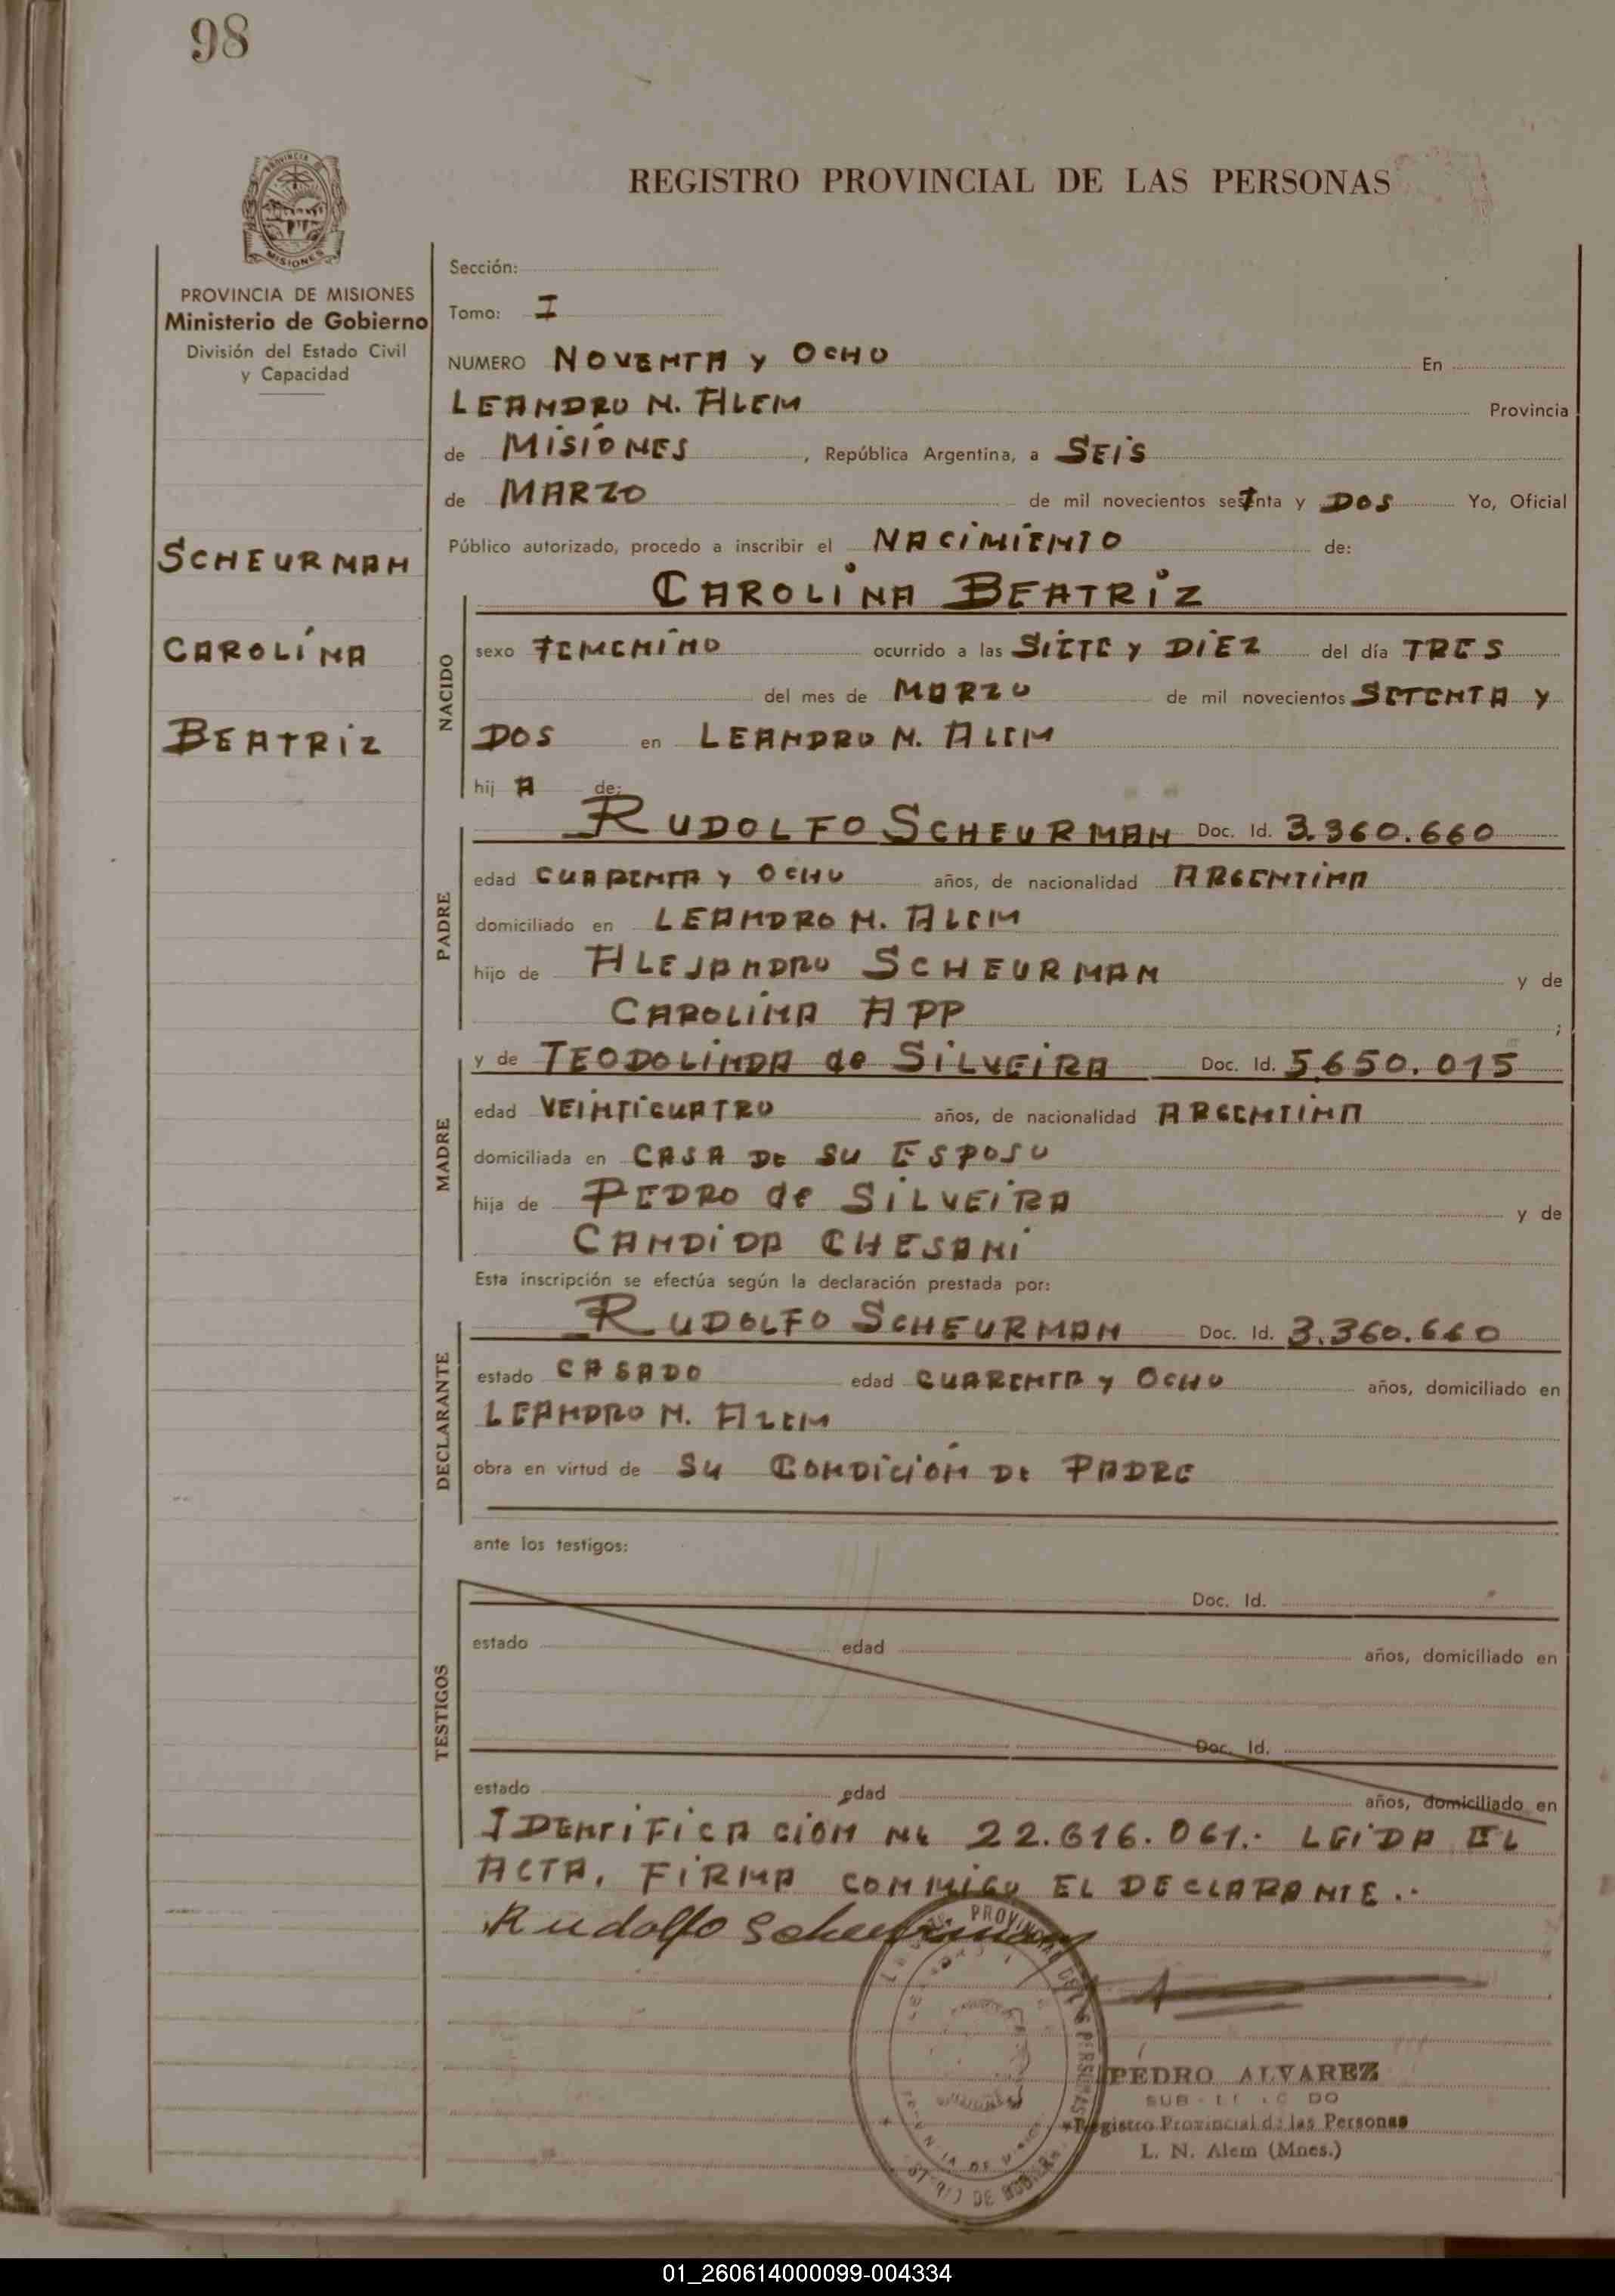 98
REGISTRO PROVINCIAL DE LAS PERSONAS
MISIONES
PROVINCIA DE MISIONES
Ministerio de Gobierno
División del Estado Civil
y Capacidad
SCHEURMAN
CAROLINA
BEATRIZ
Sección:
Tomo: I
NUMERO NOVENTA Y OCHO En
LEANDRO N. ALEM Provincia
de MISIONES, República Argentina, a SEIS
de MARZO de mil novecientos setenta y DOS Yo, Oficial
Público autorizado, procedo a inscribir el NACIMIENTO de:
CAROLINA BEATRIZ
NACIDO
sexo FEMENINO ocurrido a las SIETE Y DIEZ del día TRES
del mes de MARZO de mil novecientos SETENTA Y
DOS en LEANDRO N. ALEM
hij A de:
PADRE
RUDOLFO SCHEURMAN Doc. Id. 3.360.660
edad CUARENTA Y OCHO años, de nacionalidad ARGENTINA
domiciliado en LEANDRO N. ALEM
hijo de ALEJANDRO SCHEURMAN y de
CAROLINA APP ;
MADRE
y de TEODOLINDA de SILVEIRA Doc. Id. 5.650.015
edad VEINTICUATRO años, de nacionalidad ARGENTINA
domiciliada en CASA DE SU ESPOSO
hija de PEDRO de SILVEIRA y de
CANDIDA CHESANI
Esta inscripción se efectúa según la declaración prestada por:
DECLARANTE
RUDOLFO SCHEURMAN Doc. Id. 3.360.660
estado CASADO edad CUARENTA Y OCHO años, domiciliado en
LEANDRO N. ALEM
obra en virtud de SU CONDICIÓN DE PADRE
ante los testigos:
TESTIGOS
Doc. Id.
estado edad años, domiciliado en
Doc. Id.
estado edad años, domiciliado en
IDENTIFICACIÓN Nº 22.616.061.- LEIDA EL
ACTA, FIRMA CONMIGO EL DECLARANTE.-
Rudolfo Scheurman
PEDRO ALVAREZ
Registro Provincial de las Personas
L. N. Alem (Mnes.)
01_260614000099-004334